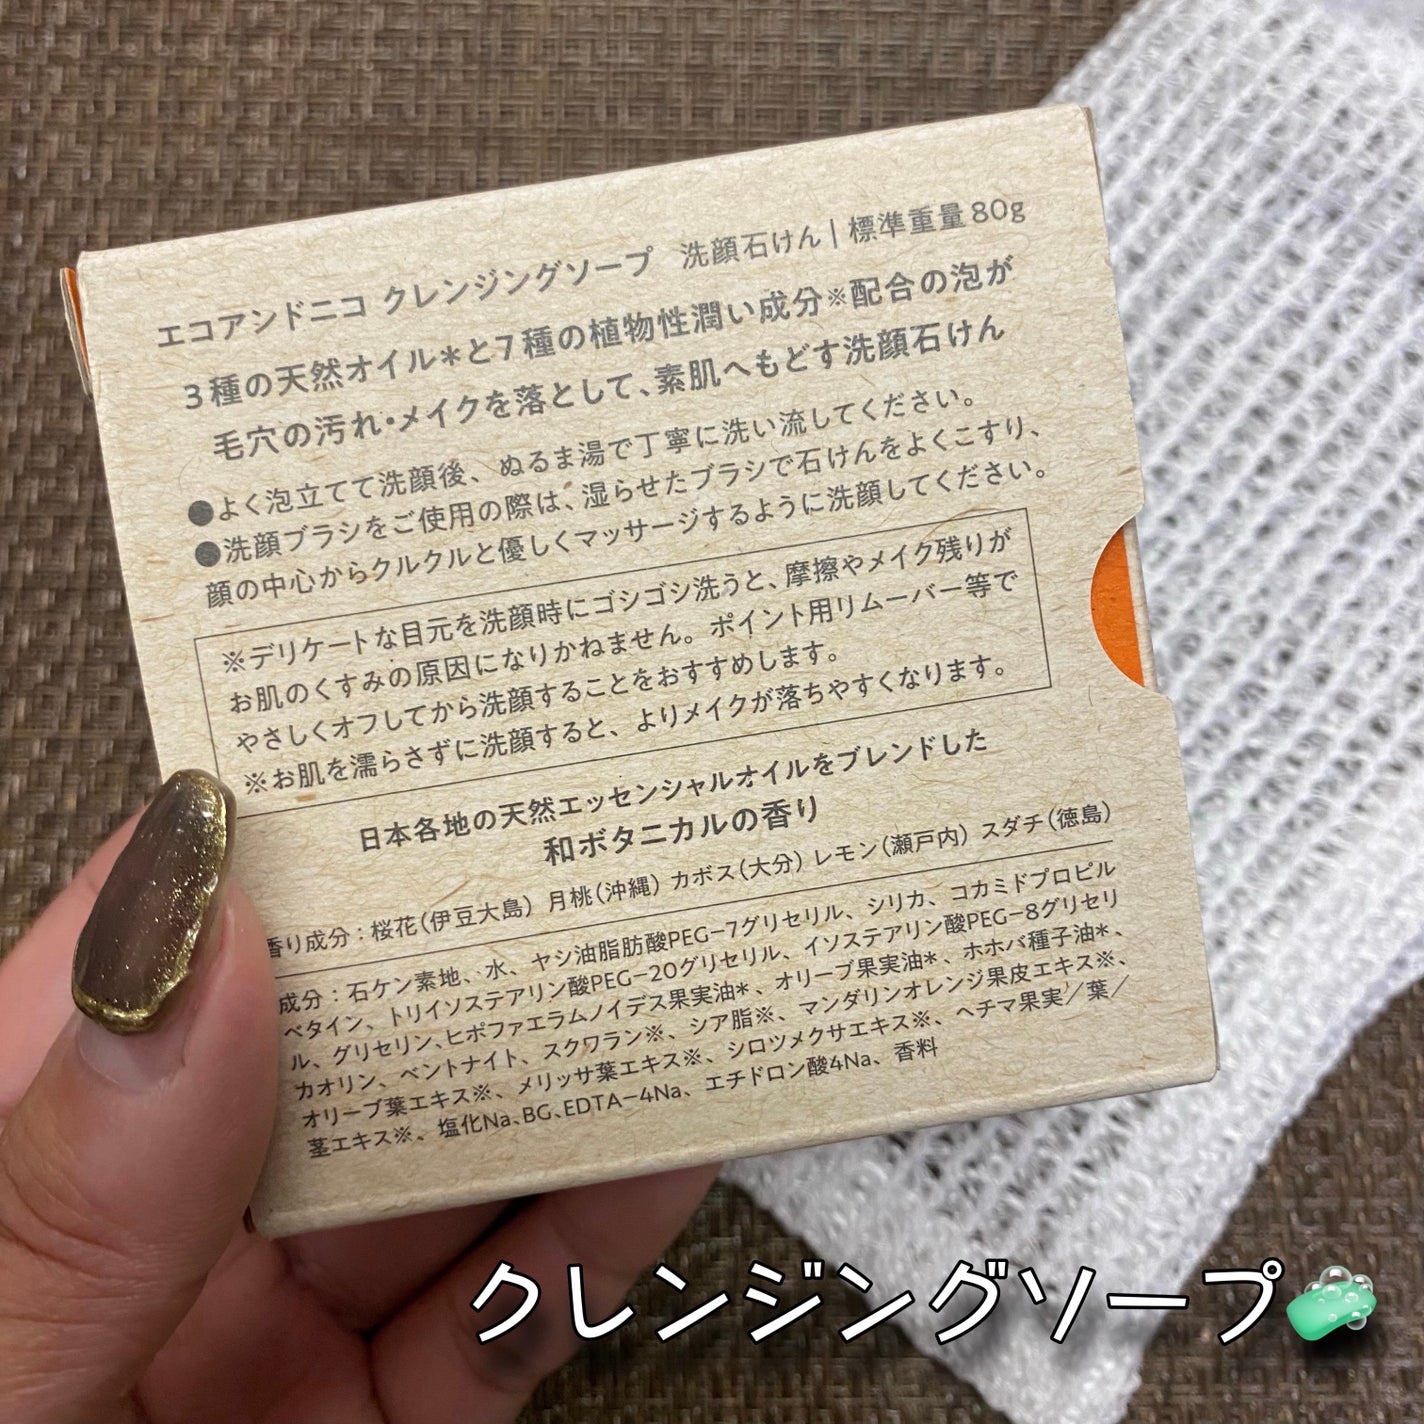 エコアンドニコ クレンジングソープ 洗顔石けん|標準重量80g
3種の天然オイル＊と7種の植物性潤い成分※配合の泡が
毛穴の汚れ・メイクを落として、素肌へもどす洗顔石けん
●よく泡立てて洗顔後、ぬるま湯で丁寧に洗い流してください。
●洗顔ブラシをご使用の際は、湿らせたブラシで石けんをよくこすり、
顔の中心からクルクルと優しくマッサージするように洗顔してください。
※デリケートな目元を洗顔時にゴシゴシ洗うと、摩擦やメイク残りが
お肌のくすみの原因になりかねません。ポイント用リムーバー等で
やさしくオフしてから洗顔することをおすすめします。
※お肌を濡らさずに洗顔すると、よりメイクが落ちやすくなります。
日本各地の天然エッセンシャルオイルをブレンドした
和ボタニカルの香り
香り成分：桜花(伊豆大島) 月桃(沖縄) カボス(大分) レモン(瀬戸内) スダチ(徳島)
成分：石ケン素地、水、ヤシ油脂肪酸PEG−7グリセリル、シリカ、コカミドプロピル
ベタイン、トリイソステアリン酸PEG−20グリセリル、イソステアリン酸PEG−8グリセリ
ル、グリセリン、ヒポファエラムノイデス果実油＊、オリーブ果実油＊、ホホバ種子油＊、
カオリン、ベントナイト、スクワラン※、シア脂※、マンダリンオレンジ果皮エキス※、
オリーブ葉エキス※、メリッサ葉エキス※、シロツメクサエキス※、ヘチマ果実／葉／
茎エキス※、塩化Na、BG、EDTA−4Na、エチドロン酸4Na、香料
クレンジングソープ🧼